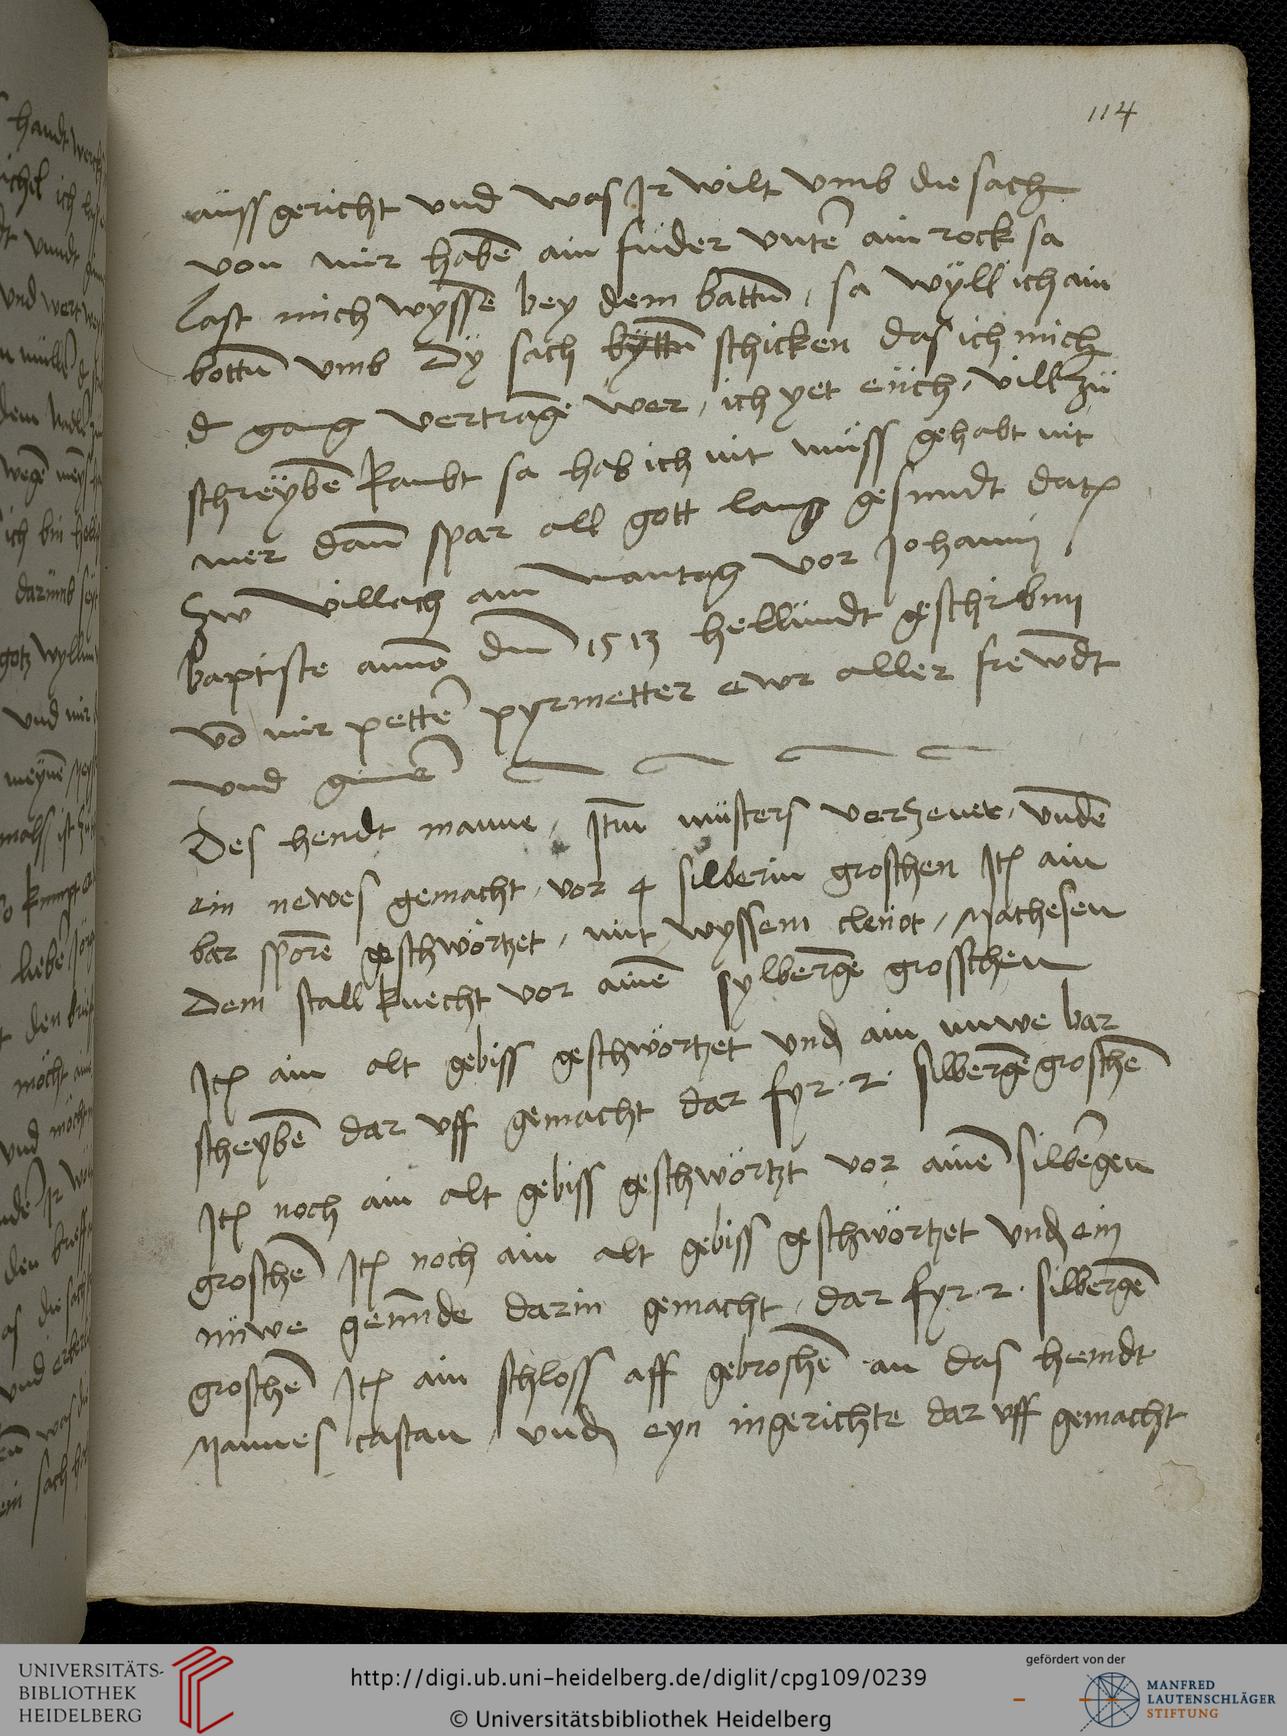 114
auss gericht vnd was Ir wilt vmb die sach
von mir habē ain fuder vntē ain rock sa
last mich wyssē bey dem battn, sa wyll ich ain
bottn vmb dy sach byttn schicken das ich mich
d gang vertragē wer, ich yet eüch, vill zü
schreybē kambt sa hab ich nit müss gehabt nit
mer dañ spar all gott lang gesundt datz
zw villach am mantag vor Johanni
baptiste anno dm 1513 hellundt geschribnn
vō mir pettē pyrmetter ewr aller frewdt
vnd
Des hendt manne, Itm müsters verzenet, vndē
ein newes gemacht, vor 4 silberin groschen Itz ain
bar sporē geschwörtzet, mit wyssem clenot, Mathesen
dem stall knecht vor ainē sylbergē grosschen
Itz ain alt gebiss geschwörtzet vnd ain nuwe bar
scheybē dar vff gemacht dar fyr .2. silbergē groschē
Itz noch ain alt gebiss geschwörtzt vor ainē silbergen
groschē Itz noch ain alt gebiss geschwörtzet vnd ein
nüwe gemünde darin gemacht, dar fyr .2. silbergē
groschē Itz ain schloss aff gebroshē an das hemdt
Mannes castan, vnd eyn ingerichte dar vff gemacht
UNIVERSITÄTS-
BIBLIOTHEK
HEIDELBERG
http://digi.ub.uni-heidelberg.de/diglit/cpg109/0239
© Universitätsbibliothek Heidelberg
gefördert von der
MANFRED
LAUTENSCHLÄGER
STIFTUNG